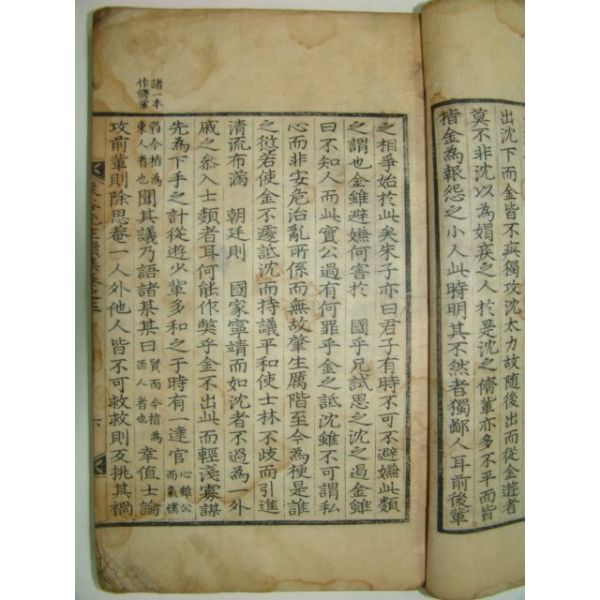 出沈下而金皆不疵獨攻沈太力故隨後出而從金遊者
莫不非沈以為媢疾之人於是沈之儕輩亦多不平而皆
指金為報怨之小人此時明其不然者獨鄙人耳前後輩
之相爭始於此矣朱子亦曰君子有時不可不避嫌此類
之謂也金雖避嫌何害於 國乎兄試思之沈之遏金雖
曰不知人而此實公過有何罪乎金之詆沈雖不可謂私
心而非安危治亂所係而無故肇生厲階至今為梗是誰
之愆若使金不遽詆沈而持議平和使士林不歧而引進
清流布滿 朝廷則 國家寧靖而如沈者不過為一外
戚之叅入士類者耳何能作獘乎金不出此而輕淺寡謀
先為下手之計從遊少輩多和之于時有一達官心雖公而氣懦
弱今指為東人者也聞其議乃語諸某某曰賢而今指為西人者也幸值士論
攻前輩則除思菴一人外他人皆不可救救則反挑其禍
諸一本
作儕輩